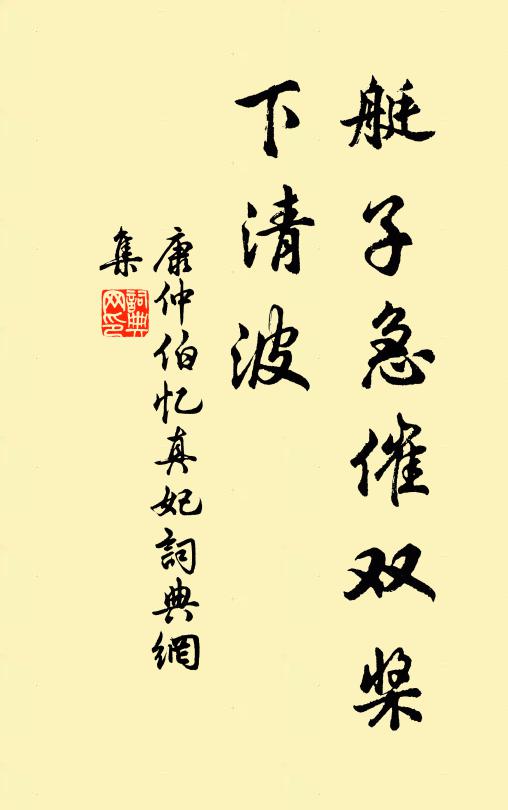 艇子急催双桨
下清波
康仲伯忆真妃詞典網
集
詞典网印